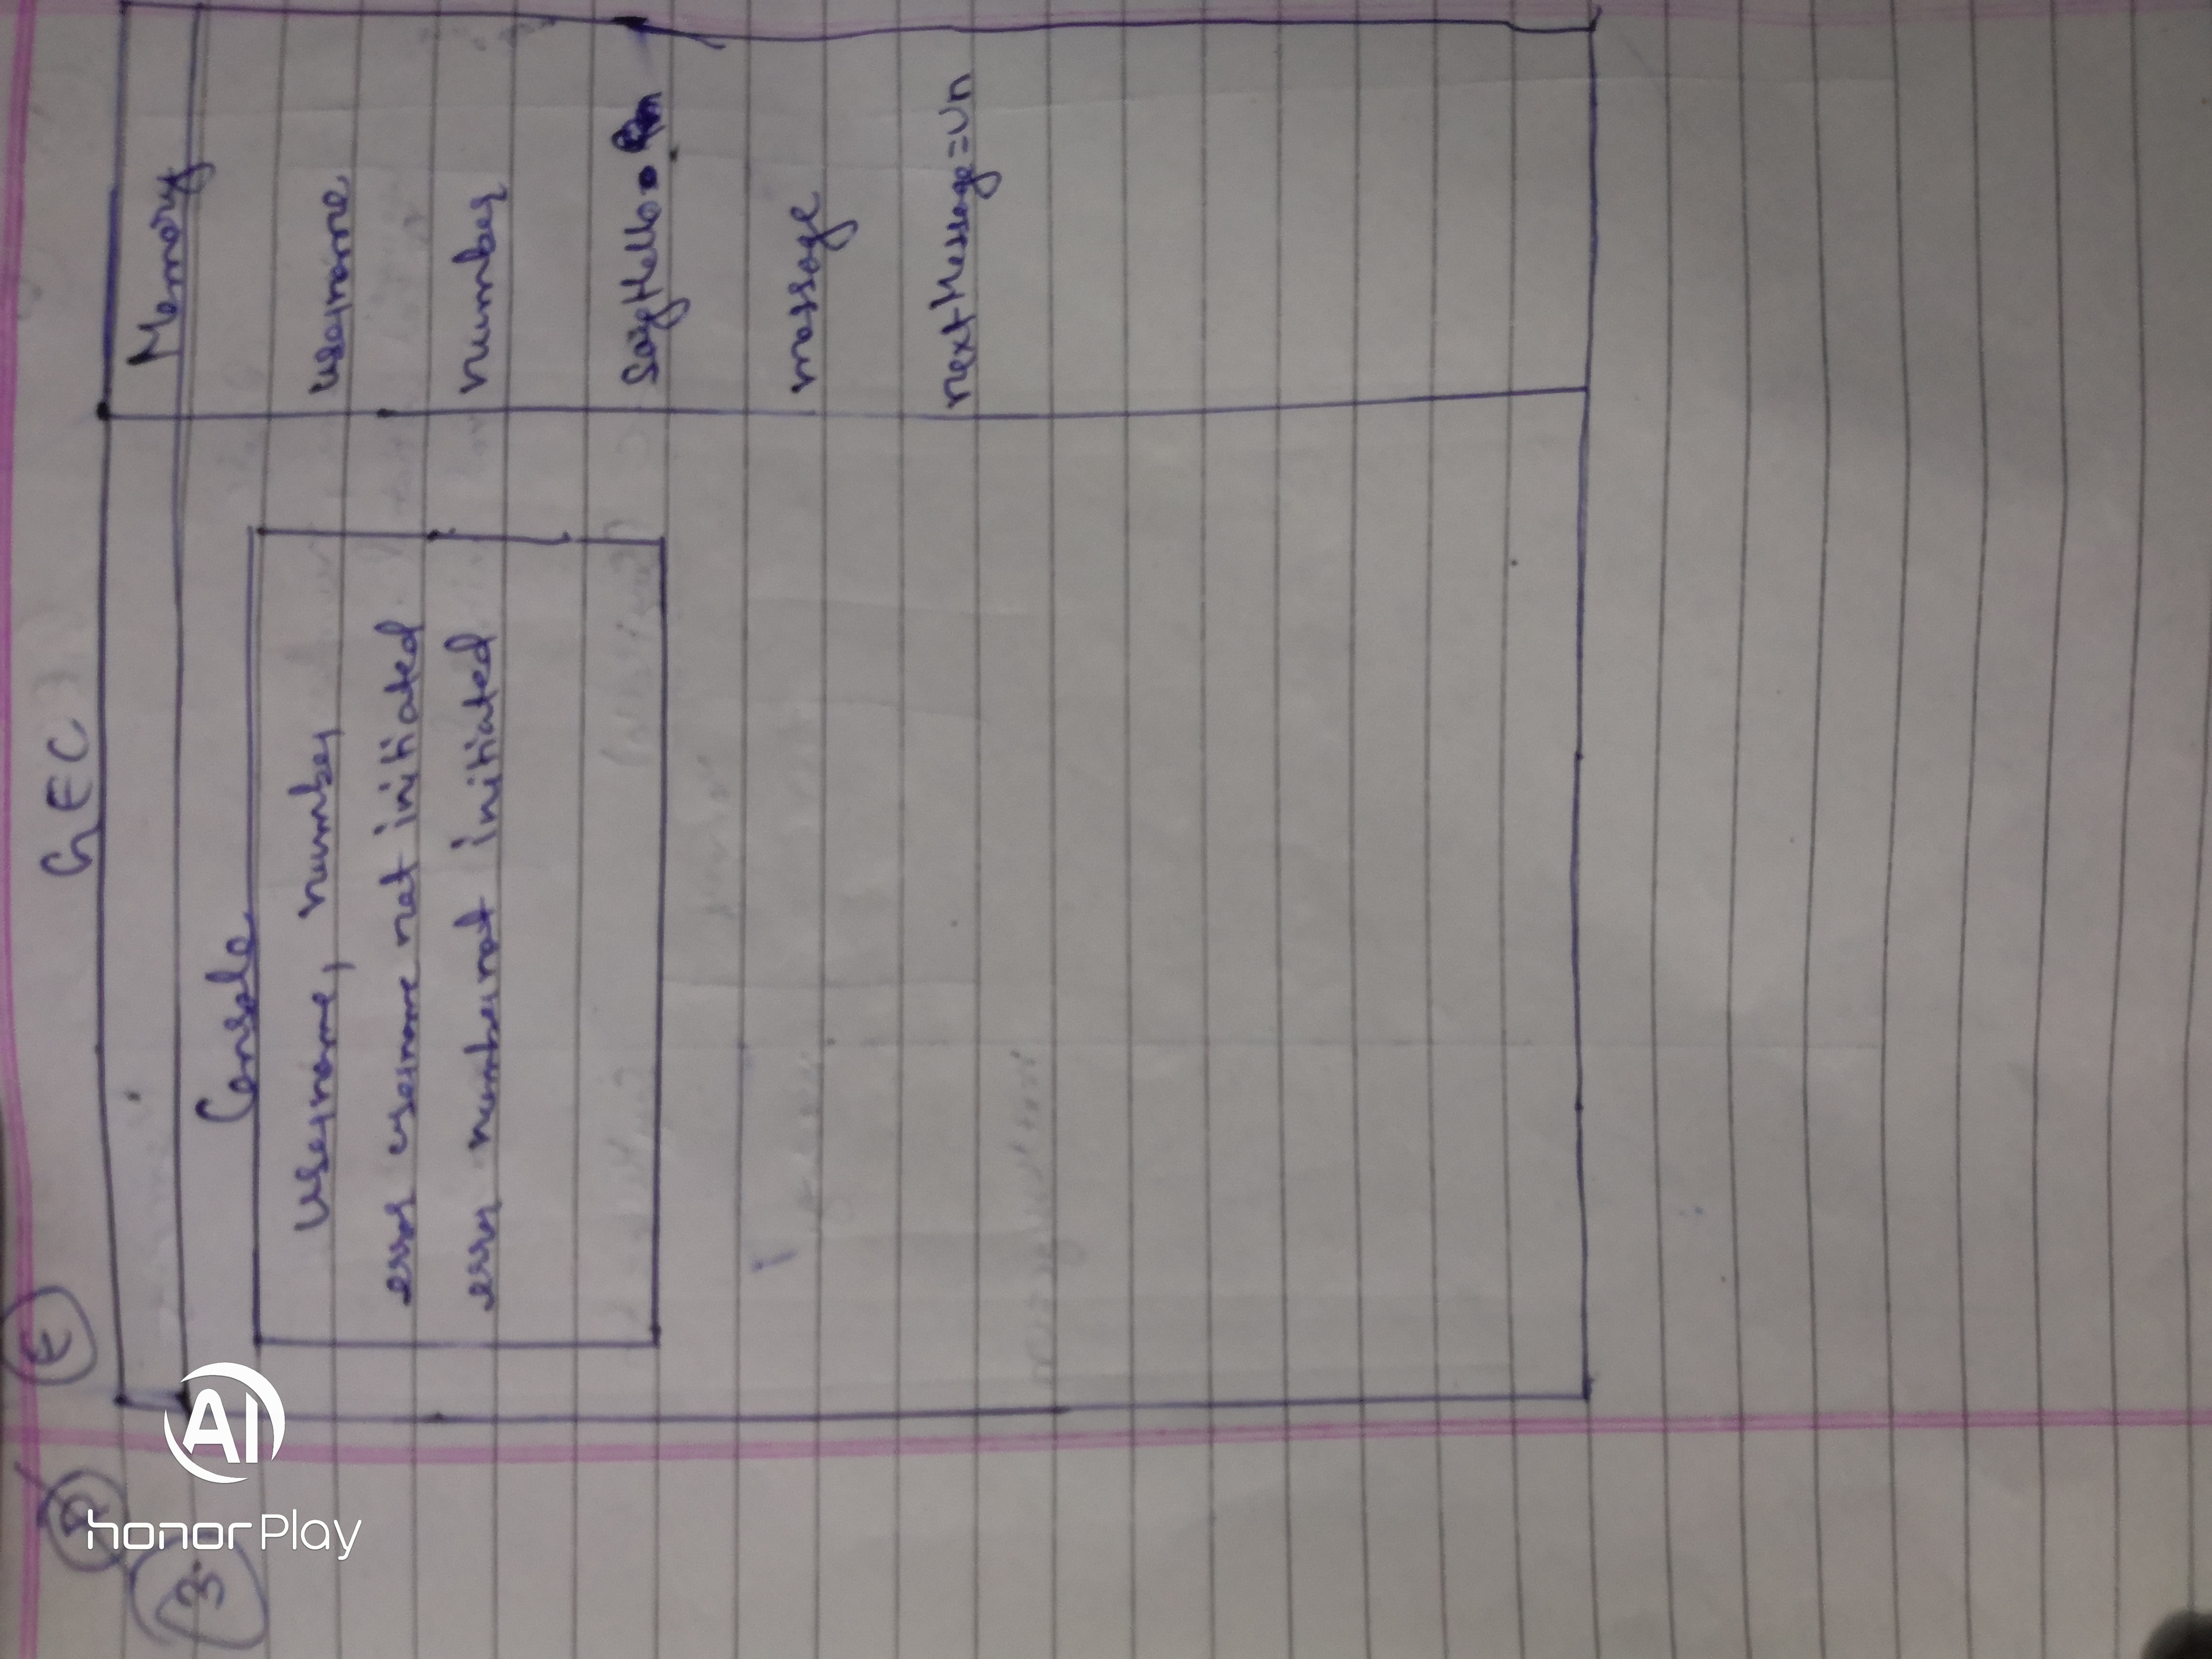 E
GEC
3.
Memory
Console
username, number
error username not initiated
error number not initiated
username
number
sayHello = fn
message
nextMessage = Un
honor Play
AI